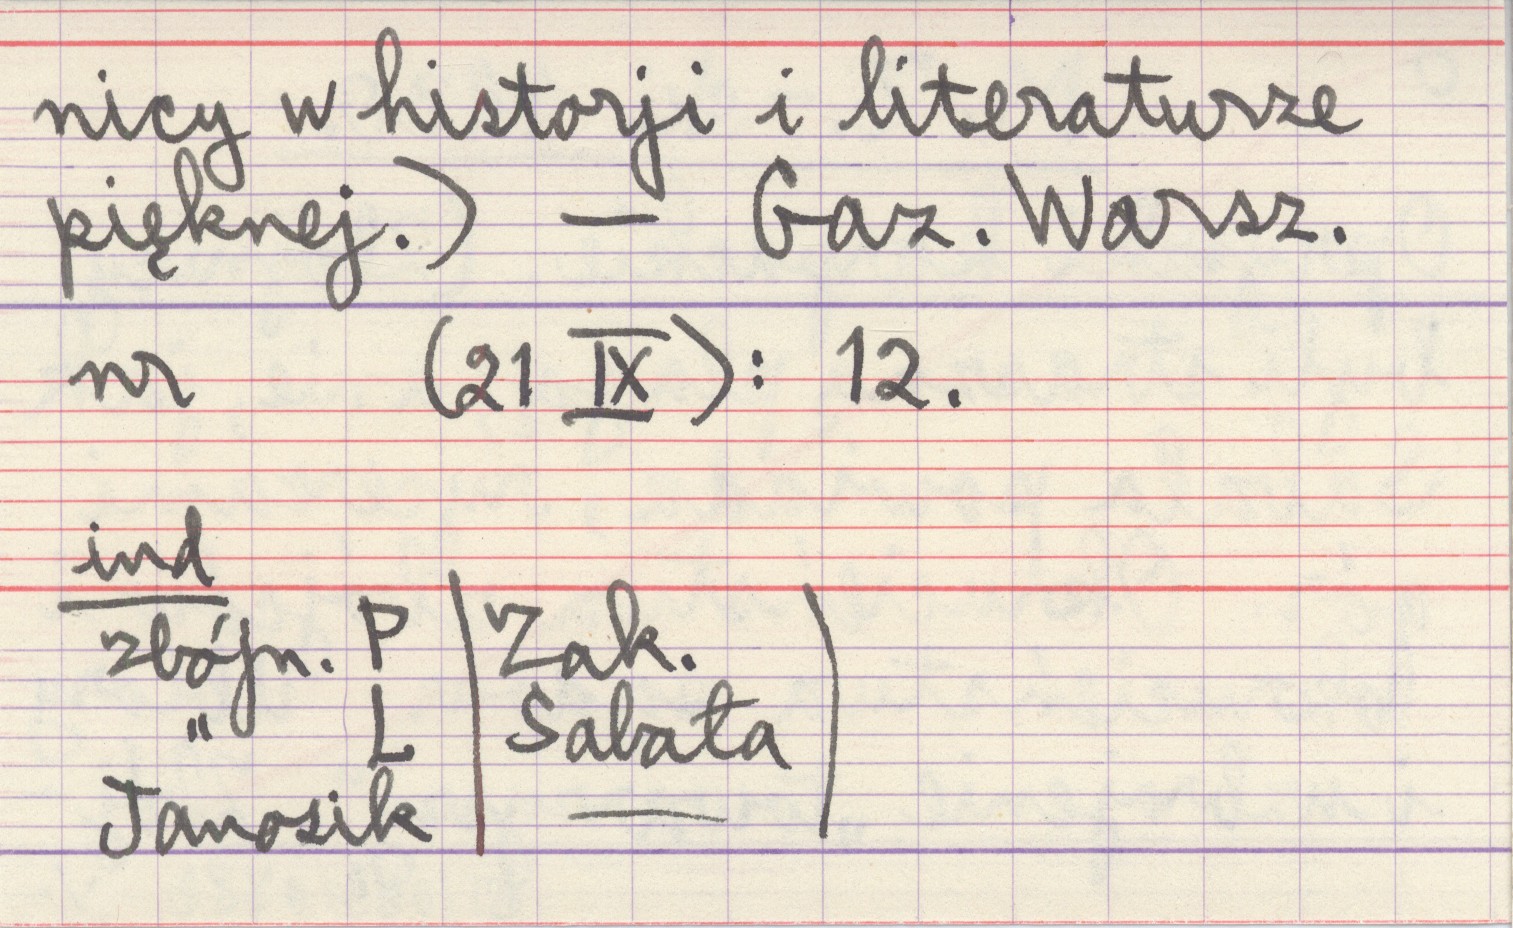 nicy w historji i literaturze
pięknej.) — Gaz. Warsz.
nr (21 IX): 12.
ind
zbójn. P | Zak.
" L | Sabała
Janosik